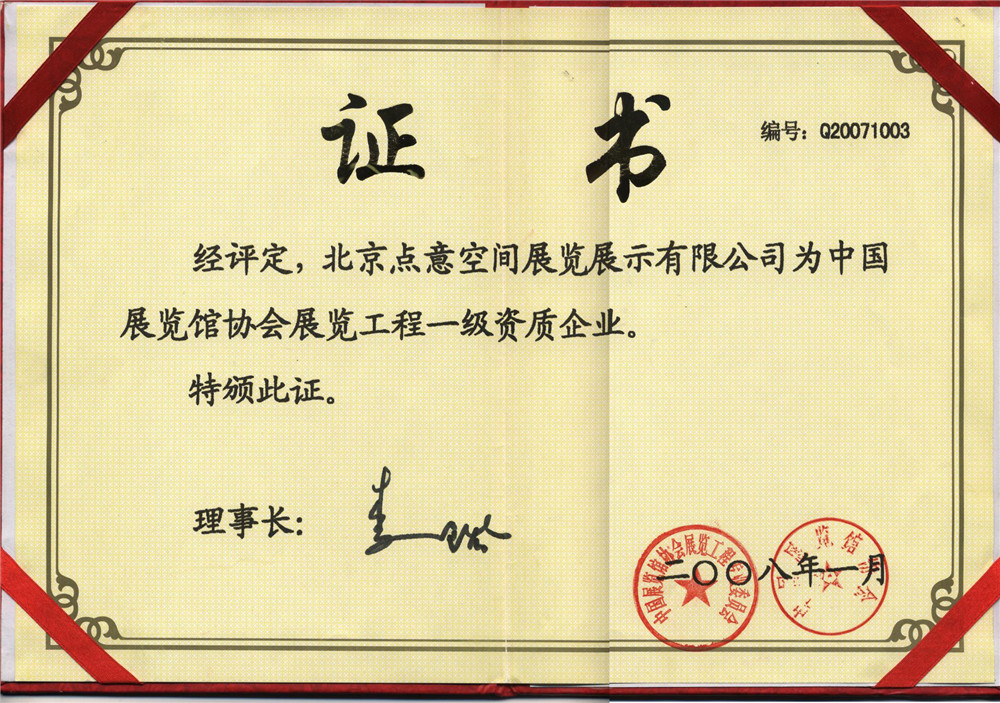 证书
编号：Q20071003
经评定，北京点意空间展览展示有限公司为中国
展览馆协会展览工程一级资质企业。
特颁此证。
理事长：
二〇〇八年一月
中国展览馆协会展览工程专业委员会